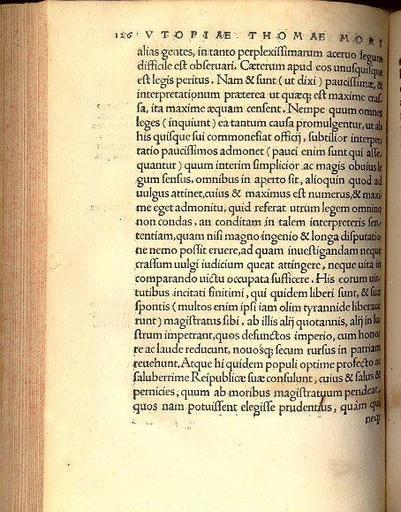 126 VTOPIAE THOMAE MORI
alias gentes, in tanto perplexissimarum aceruo legum
difficile est obseruari. Cæterum apud eos unusquisque
est legis peritus. Nam & sunt (ut dixi) paucissimæ, &
interpretationum præterea ut quæq; est maxime cras
sa, ita maxime æquam censent. Nempe quum omnes
leges (inquiunt) ea tantum causa promulgentur, ut ab
his quisque sui commonefiat officij, subtilior interpre
tatio paucissimos admonet (pauci enim sunt qui asse
quantur) quum interim simplicior ac magis obuius le
gum sensus, omnibus in aperto sit, alioquin quod ad
uulgus attinet, cuius & maximus est numerus, & maxi
me eget admonitu, quid referat utrum legem omnino
non condas, an conditam in talem interpreteris sen
tentiam, quam nisi magno ingenio & longa disputatio
ne nemo possit eruere, ad quam inuestigandam neque
crassum uulgi iudicium queat attingere, neque uita in
comparando uictu occupata sufficere. His eorum uir
tutibus incitati finitimi, qui quidem liberi sunt, & suæ
spontis (multos enim ipsi iam olim tyrannide liberaue
runt) magistratus sibi, ab illis alij quotannis, alij in lu
strum impetrant, quos defunctos imperio, cum hono
re ac laude reducunt, nouosq; secum rursus in patriam
reuehunt. Atque hi quidem populi optime profecto ac
saluberrime Reipublicæ suæ consulunt, cuius & salus &
pernicies, quum ab moribus magistratuum pendeat,
quos nam potuissent elegisse prudentius, quàm qui
neq;